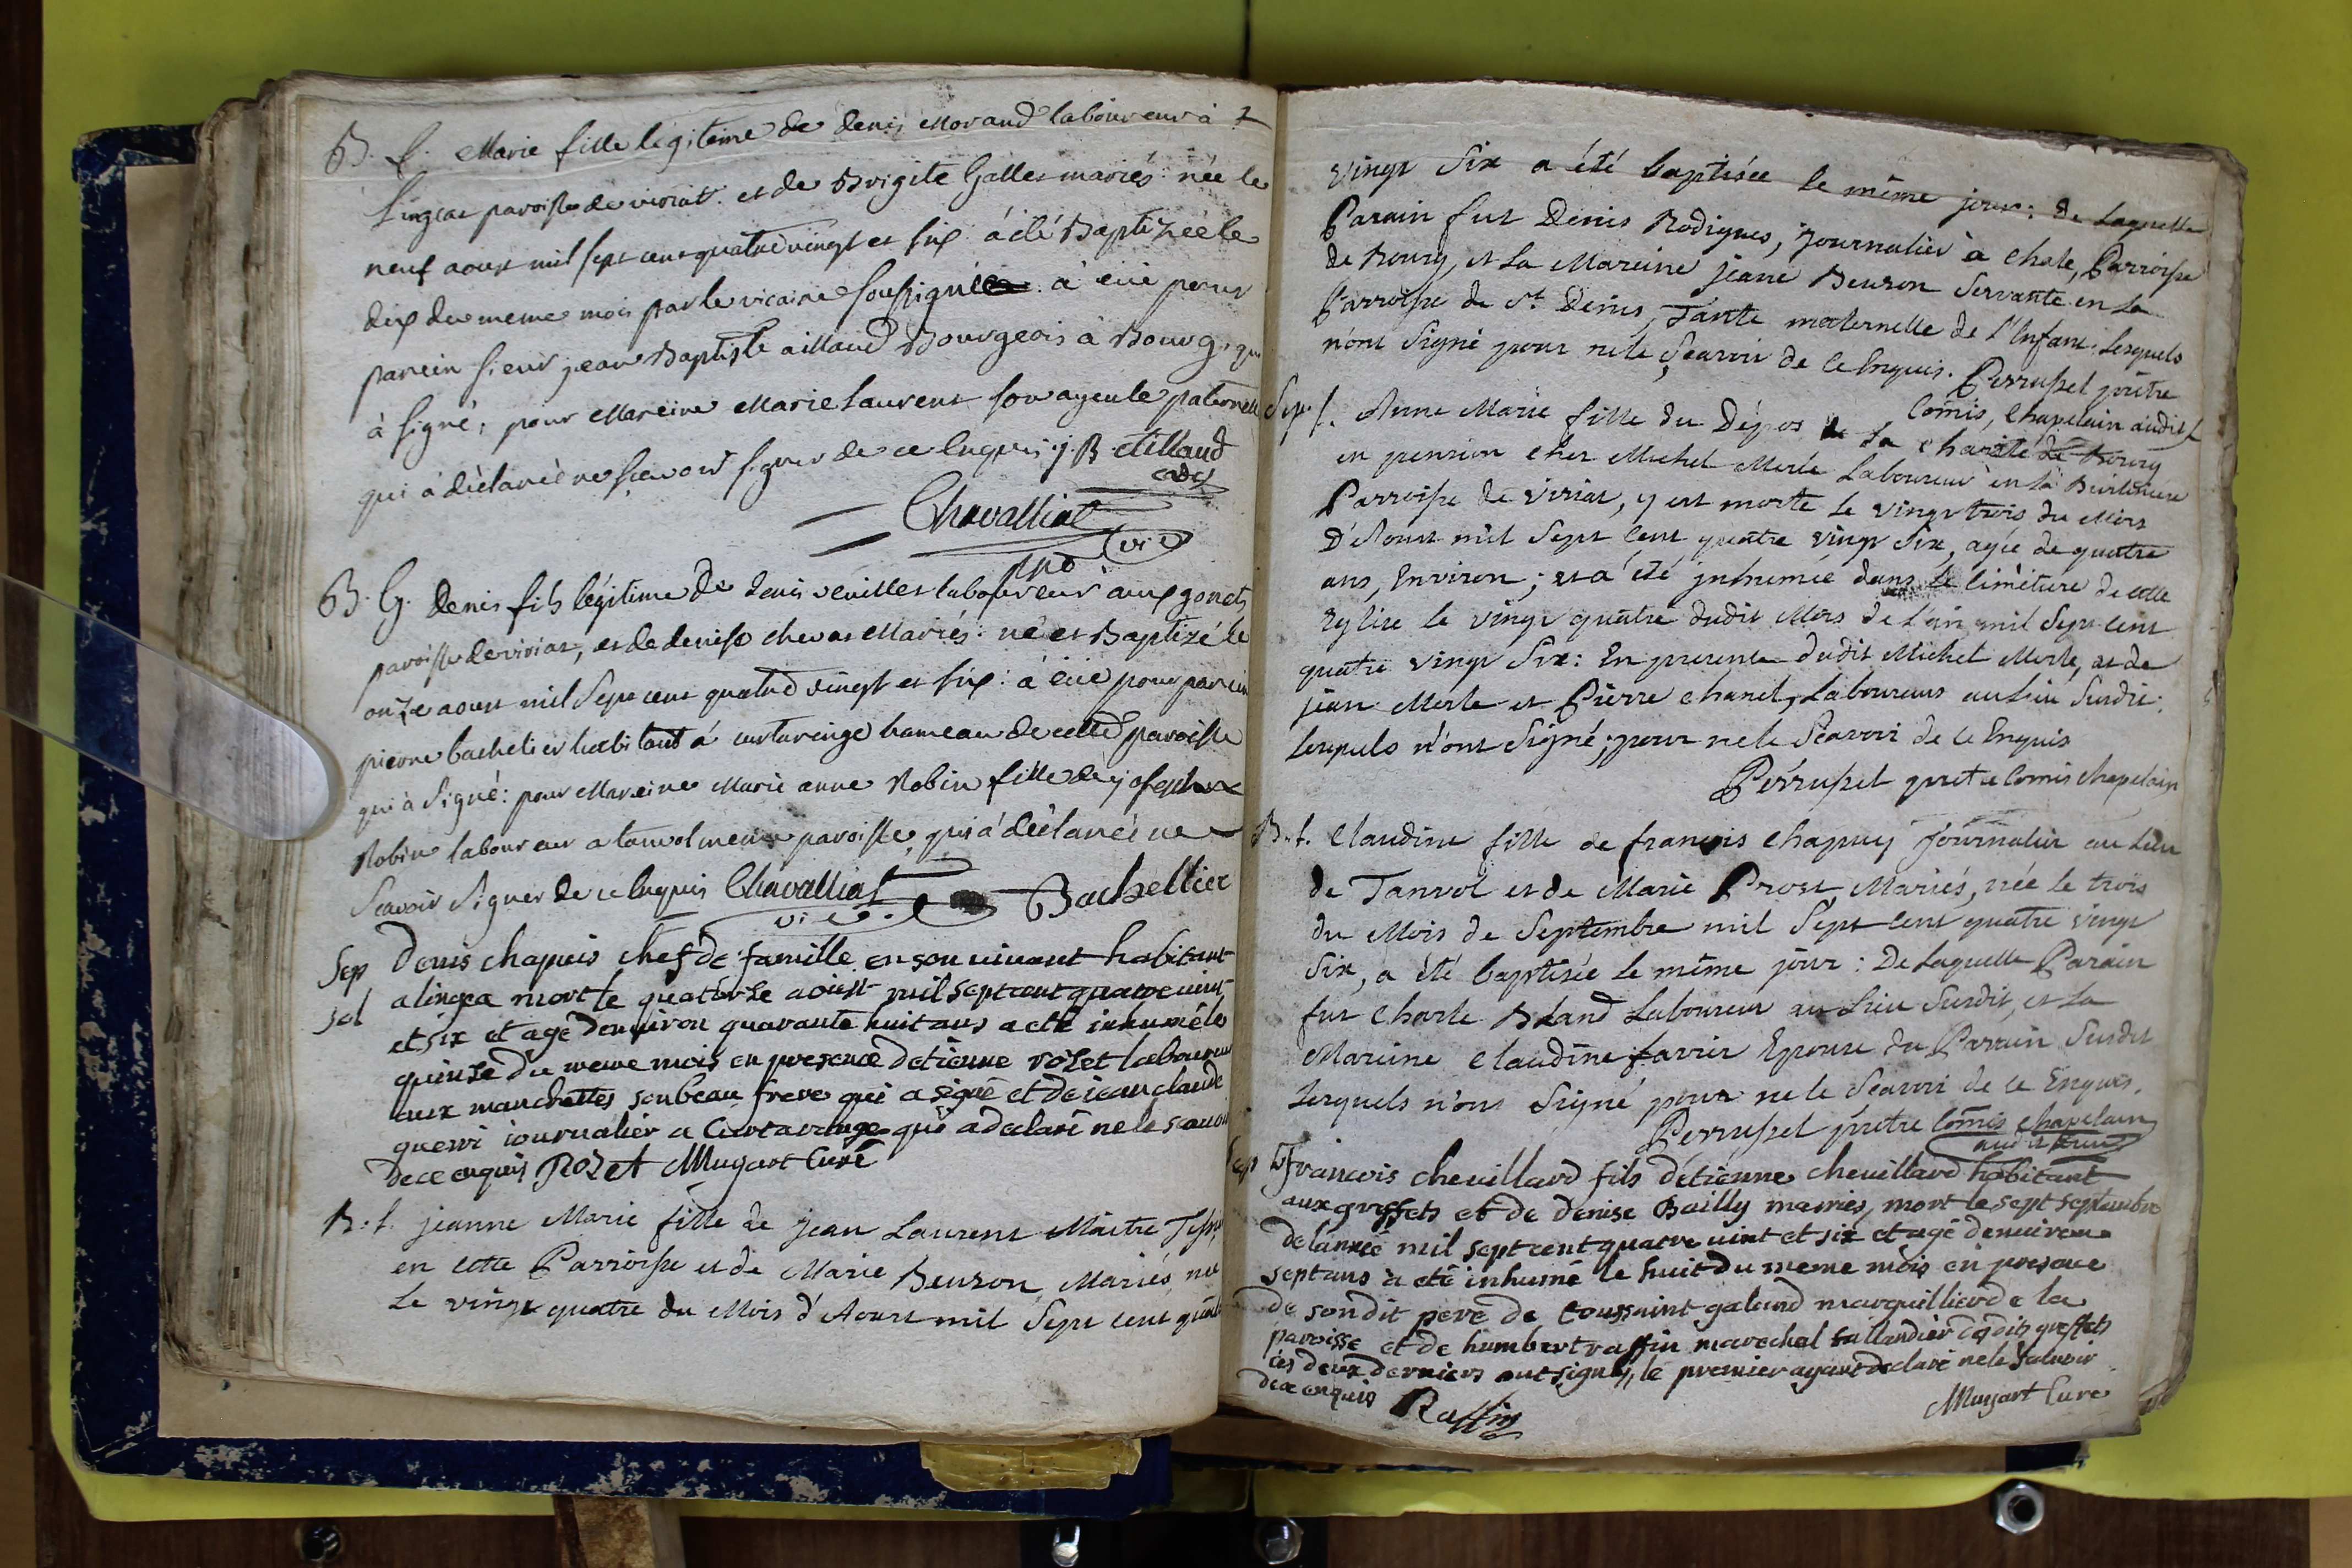 B. f. Marie fille légitime de denis Morand laboureur à
Lingeat paroisse de viriat. et de Brigite Gallet mariés née le
neuf aoust mil sept cent quatre vingt et six a été Baptizée le
dix du meme mois par le vicaire soussigné à eüe pour
parein sieur jean Baptiste aillaud Bourgeois à Bourg, qui
à signé, pour Mareine Marie Laurent son ayeule paternelle
qui à déclaré ne sçavoir signer de ce enquis. j. B Aillaud
Chavalliat
vic
B. G. denis fils légitime de denis veuillet laboureur aux gonets
paroisse de viriat, et de denise chevat Mariés: né et Baptizé le
onze aoust mil Sept cent quatre vingt et six: à eüe pour parein
pierre bachelier habitant à curtaringe hameau de cette paroisse
qui à signé: pour Mareine Marie anne Robin fille de joseph
Robin laboureur a tanvol meme paroisse, qui a déclaré ne
Scavoir Signer de ce enquis Chavalliat Bachellier
vic.
Sep Denis chapuis chef de famille en son vivant habitant
sol a lingea mort le quatorse aoust mil sept cent quatre vint
et six et agé denviron quarante huit ans a eté inhumé le
quinse du meme mois en presence detienne rozet laboureur
aux manchettes son beau frere qui a signé et de jean claude
guerri journalier a Curtaringe qui a declaré ne le scavoir
de ce enquis Rozet Mugart Curé
B. f. jeanne Marie fille de jean Laurent Maitre
en cette Parroisse et de Marie Beuzon Mariés, née
le vingt quatre du Mois d'Aoust mil Sept cent quatre
vingt Six a été baptisée le même jour: de Laquelle
Parain fut Denis Rodignes, journalier à chale, Parroisse
de Bourg, et la Mareine jeane Beuzon Servante en la
Parroisse de St Denis, Tante maternelle de l'Enfant. Lesquels
n'ont Signé pour ne le Sçavoir de ce Enquis. Perrussel prêtre
Comis, Chapelain audit
Sep. f. Anne Marie fille du Dépos de la charité de Bourg
en pension chez Michel Merle Laboureur en la
Parroisse de Viriat, y est morte le vingt trois du Mois
D'Aoust mil Sept Cent quatre vingt Six, agée de quatre
ans, Environ; et a été inhumée dans le Cimetiere de cette
Eglise le vingt quatre dudit Mois de l'an mil Sept cent
quatre vingt Six: En presence dudit Michel Merle, et de
jean Merle et Pierre chanel, Laboureurs au Lieu Susdit.
Lesquels n'ont Signé; pour ne le Sçavoir de ce Enquis
Perrussel pretre Comis chapelain
B. f. Claudine fille de françois Chapuy journalier au Lieu
de Tanvol et de Marie Prost Mariés, née le trois
du Mois de Septembre mil Sept cent quatre vingt
Six, a été baptisée le même jour: De Laquelle Parain
fut Charle Bland Laboureur au Lieu Susdit, et la
Mareine Claudine favrier Epouse du Parrain Susdit
Lesquels n'ont Signé pour ne le Sçavoir de ce Enquis.
Perrussel prêtre Comis chapelain
Sep G françois cheuillard fils détienne cheuillard habitant
aux greffets et de denise Bailly mariés, mort le sept septembre
de lannée mil sept cent quatre vint et six et agé denviron
sept ans a eté inhumé le huit du meme mois en presence
de sondit pere de toussaint galand marguillier de la
paroisse et de humbert raffin marechal taillandier esdits greffets
ces deux derniers ont signés, le premier ayant declaré ne le scavoir
de ce enquis Raffin Mugart Curé